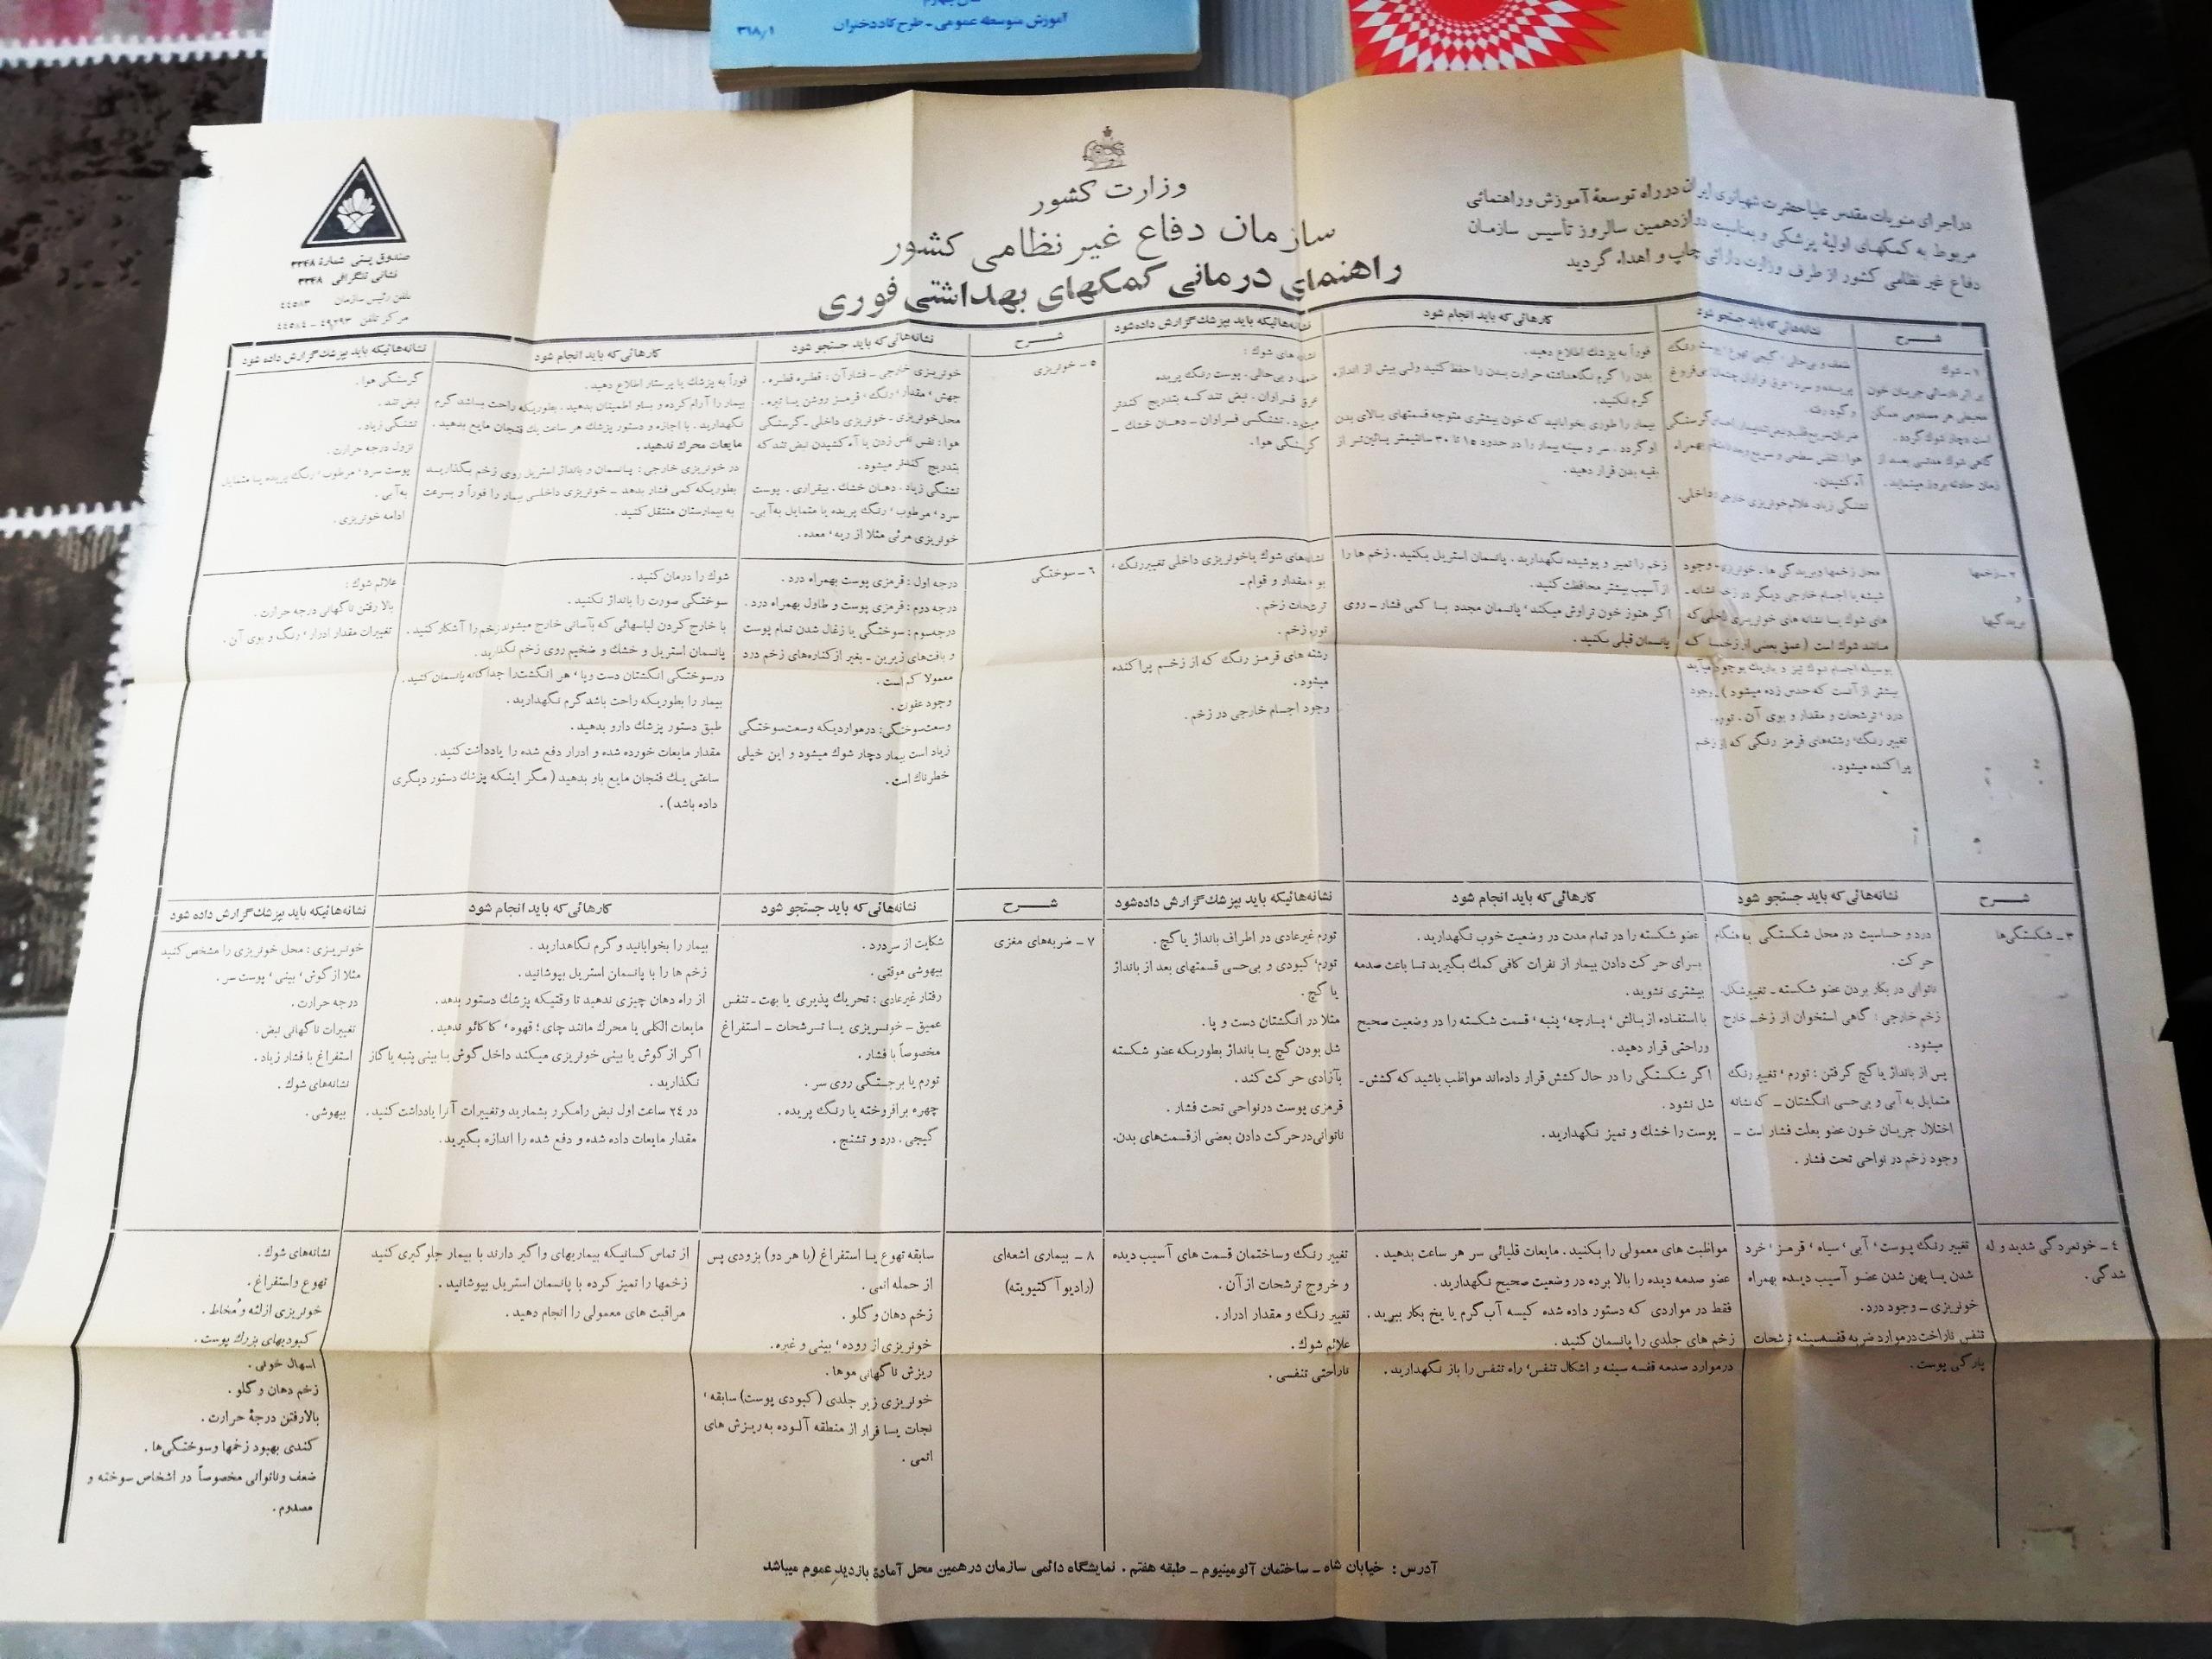 آموزش متوسطه عمومی ـ طرح کاد دختران
۳۶۸/۱
وزارت کشور
سازمان دفاع غیر نظامی کشور
راهنمای درمانی کمکهای بهداشتی فوری
در اجرای منویات مقدس علیاحضرت شهبانوی ایران در راه توسعهٔ آموزش و راهنمائی
مربوط به کمکهای اولیهٔ پزشکی و بمناسبت دوازدهمین سالروز تأسیس سازمان
دفاع غیر نظامی کشور از طرف وزارت دارائی چاپ و اهداء گردید
صندوق پستی شمارهٔ ۳۳۴۸
نشانی تلگرافی ۳۳۴۸
تلفن رئیس سازمان ۴۴۵۸۳
مرکز تلفن ۴۹۲۹۳ ـ ۴۴۵۸۴
شرح
نشانه‌هائی که باید جستجو شود
کارهائی که باید انجام شود
نشانه‌هائیکه باید بپزشک گزارش داده شود
۱ ـ شوك
گاهی شوك مدتی بعد از
زمان حادثه بروز مینماید.
ضعف و بی‌حالی، گیجی
و گود رفته.
آه کشیدن.
تشنگی زیاد، علائم خونریزی خارجی، داخلی.
فوراً به پزشك اطلاع دهید.
بدن را گرم نگاهداشته حرارت بدن را حفظ کنید ولی بیش از اندازه
گرم نکنید.
بیمار را طوری بخوابانید که خون بیشتری متوجه قسمتهای بالای بدن
او گردد. سر و سینه بیمار را در حدود ۱۵ تا ۳۰ سانتیمتر پائین‌تر از
بقیه بدن قرار دهید.
نشانه‌های شوك :
ضعف و بی‌حالی. پوست رنگ پریده
عرق فراوان. نبض تند که بتدریج کندتر
میشود. تشنگی فراوان ـ دهان خشك ـ
گرسنگی هوا.
۲ ـ زخمها
و
بریدگیها
محل زخمها و بریدگی ها ـ خونریزی، وجود
شیشه یا اجسام خارجی دیگر در زخم نشانه‌ـ
های شوك یا نشانه های خونریزی داخلی که
مانند شوك است (عمق بعضی از زخمها که
بوسیله اجسام نوك تیز و باریك بوجود میآید
بیشتر از آنست که حدس زده میشود). وجود
درد، ترشحات و مقدار و بوی آن. تورم.
تغییر رنگ، رشته‌های قرمز رنگی که از زخم
پراکنده میشود.
زخم را تمیز و پوشیده نگهدارید. پانسمان استریل بکنید. زخم ها را
از آسیب بیشتر محافظت کنید.
اگر هنوز خون تراوش میکند، پانسمان مجدد با کمی فشار ـ روی
پانسمان قبلی بکنید.
نشانه‌های شوك یا خونریزی داخلی تغییر رنگ،
بو، مقدار و قوام ـ
ترشحات زخم.
تورم زخم.
رشته های قرمز رنگ که از زخم پراکنده
میشود.
وجود اجسام خارجی در زخم.
شرح
نشانه‌هائی که باید جستجو شود
کارهائی که باید انجام شود
نشانه‌هائیکه باید بپزشك گزارش داده شود
۳ ـ شکستگی‌ها
درد و حساسیت در محل شکستگی به هنگام
حرکت.
ناتوانی در بکار بردن عضو شکسته ـ تغییر شکل.
زخم خارجی : گاهی استخوان از زخم خارج
میشود.
پس از بانداژ یا گچ گرفتن : تورم، تغییر رنگ
متمایل به آبی و بی‌حسی انگشتان ـ که نشانه
اختلال جریان خون عضو بعلت فشار است ـ
وجود زخم در نواحی تحت فشار.
عضو شکسته را در تمام مدت در وضعیت خوب نگهدارید.
برای حرکت دادن بیمار از نفرات کافی کمك بگیرید تا باعث صدمه
بیشتری نشوید.
با استفاده از بالش، پارچه، پنبه، قسمت شکسته را در وضعیت صحیح
و راحتی قرار دهید.
اگر شکستگی را در حال کشش قرار داده‌اند مواظب باشید که کشش ـ
شل نشود.
پوست را خشك و تمیز نگهدارید.
تورم غیرعادی در اطراف بانداژ یا گچ.
تورم، کبودی و بی‌حسی قسمتهای بعد از بانداژ
یا گچ.
مثلا در انگشتان دست و پا.
شل بودن گچ یا بانداژ بطوریکه عضو شکسته
بآزادی حرکت کند.
قرمزی پوست در نواحی تحت فشار.
ناتوانی در حرکت دادن بعضی از قسمت‌های بدن.
۴ ـ خونمردگی شدید و له
شدگی.
تغییر رنگ پوست، آبی، سیاه، قرمز، خرد
شدن یا پهن شدن عضو آسیب دیده بهمراه
خونریزی ـ وجود درد.
تنفس ناراحت در موارد ضربه قفسه سینه ترشحات
پارگی پوست.
مواظبت های معمولی را بکنید. مایعات قلیائی سر هر ساعت بدهید.
عضو صدمه دیده را بالا برده در وضعیت صحیح نگهدارید.
فقط در مواردی که دستور داده شده کیسه آب گرم یا یخ بکار ببرید.
زخم های جلدی را پانسمان کنید.
در موارد صدمه قفسه سینه و اشکال تنفس، راه تنفس را باز نگهدارید.
تغییر رنگ و ساختمان قسمت های آسیب دیده
و خروج ترشحات از آن.
تغییر رنگ و مقدار ادرار.
علائم شوك.
ناراحتی تنفسی.
شرح
نشانه‌هائی که باید جستجو شود
کارهائی که باید انجام شود
نشانه‌هائیکه باید بپزشك گزارش داده شود
۵ ـ خونریزی
خونریزی خارجی ـ فشار آن : قطره قطره.
جهش، مقدار، رنگ، قرمز روشن یا تیره.
محل خونریزی ـ خونریزی داخلی ـ گرسنگی
هوا : نفس نفس زدن یا آه کشیدن نبض تند که
بتدریج کندتر میشود.
تشنگی زیاد. دهان خشك. بیقراری. پوست
سرد، مرطوب، رنگ پریده یا متمایل به آبی.
خونریزی مرئی مثلا از ریه، معده.
فوراً به پزشك یا پرستار اطلاع دهید.
بیمار را آرام کرده و باو اطمینان بدهید. بطوریکه راحت باشد گرم
نگهدارید. با اجازه و دستور پزشك هر ساعت یك فنجان مایع بدهید.
مایعات محرك ندهید.
در خونریزی خارجی : پانسمان و بانداژ استریل روی زخم بگذارید
بطوریکه کمی فشار بدهد ـ خونریزی داخلی بیمار را فوراً و بسرعت
به بیمارستان منتقل کنید.
گرسنگی هوا.
نبض تند.
تشنگی زیاد.
نزول درجه حرارت.
پوست سرد، مرطوب، رنگ پریده یا متمایل
به آبی.
ادامه خونریزی.
۶ ـ سوختگی
درجه اول : قرمزی پوست بهمراه درد.
درجه دوم : قرمزی پوست و طاول بهمراه درد.
درجه سوم : سوختگی یا زغال شدن تمام پوست
و بافت‌های زیرین ـ بغیر از کناره‌های زخم درد
معمولا کم است.
وجود عفونت.
وسعت سوختگی: در مواردیکه وسعت سوختگی
زیاد است بیمار دچار شوك میشود و این خیلی
خطرناك است.
شوك را درمان کنید.
سوختگی صورت را بانداژ نکنید.
با خارج کردن لباسهائی که بآسانی خارج میشوند زخم را آشکار کنید.
پانسمان استریل و خشك و ضخیم روی زخم بگذارید.
در سوختگی انگشتان دست و پا، هر انگشت را جداگانه پانسمان کنید.
بیمار را بطوریکه راحت باشد گرم نگهدارید.
طبق دستور پزشك دارو بدهید.
مقدار مایعات خورده شده و ادرار دفع شده را یادداشت کنید.
ساعتی یك فنجان مایع باو بدهید (مگر اینکه پزشك دستور دیگری
داده باشد).
علائم شوك :
بالا رفتن ناگهانی درجه حرارت.
تغییرات مقدار ادرار، رنگ و بوی آن.
شرح
نشانه‌هائی که باید جستجو شود
کارهائی که باید انجام شود
نشانه‌هائیکه باید بپزشك گزارش داده شود
۷ ـ ضربه‌های مغزی
شکایت از سردرد.
بیهوشی موقتی.
رفتار غیرعادی : تحریك پذیری یا بهت ـ تنفس
عمیق ـ خونریزی یا ترشحات ـ استفراغ
مخصوصاً با فشار.
تورم یا برجستگی روی سر.
چهره برافروخته یا رنگ پریده.
گیجی. درد و تشنج.
بیمار را بخوابانید و گرم نگاهدارید.
زخم ها را با پانسمان استریل بپوشانید.
از راه دهان چیزی ندهید تا وقتیکه پزشك دستور بدهد.
مایعات الکلی یا محرك مانند چای، قهوه، کاکائو ندهید.
اگر از گوش یا بینی خونریزی میکند داخل گوش یا بینی پنبه یا گاز
نگذارید.
در ۲۴ ساعت اول نبض را مکرر بشمارید و تغییرات آنرا یادداشت کنید.
مقدار مایعات داده شده و دفع شده را اندازه بگیرید.
خونریزی : محل خونریزی را مشخص کنید
مثلا از گوش، بینی، پوست سر.
درجه حرارت.
تغییرات ناگهانی نبض.
استفراغ با فشار زیاد.
نشانه‌های شوك.
بیهوشی.
۸ ـ بیماری اشعه‌ای
(رادیو آکتیویته)
سابقه تهوع یا استفراغ (یا هر دو) بزودی پس
از حمله اتمی.
زخم دهان و گلو.
خونریزی از روده، بینی و غیره.
ریزش ناگهانی موها.
خونریزی زیر جلدی (کبودی پوست) سابقه،
نجات یا فرار از منطقه آلوده به ریزش های
اتمی.
از تماس کسانیکه بیماریهای واگیر دارند با بیمار جلوگیری کنید
زخمها را تمیز کرده با پانسمان استریل بپوشانید.
مراقبت های معمولی را انجام دهید.
نشانه‌های شوك.
تهوع و استفراغ.
خونریزی از لثه و مُخاط.
کبودیهای بزرك پوست.
اسهال خونی.
زخم دهان و گلو.
بالا رفتن درجهٔ حرارت.
کندی بهبود زخمها و سوختگی‌ها.
ضعف و ناتوانی مخصوصاً در اشخاص سوخته و
مصدوم.
آدرس : خیابان شاه ـ ساختمان آلومینیوم ـ طبقه هفتم. نمایشگاه دائمی سازمان در همین محل آمادهٔ بازدید عموم میباشد